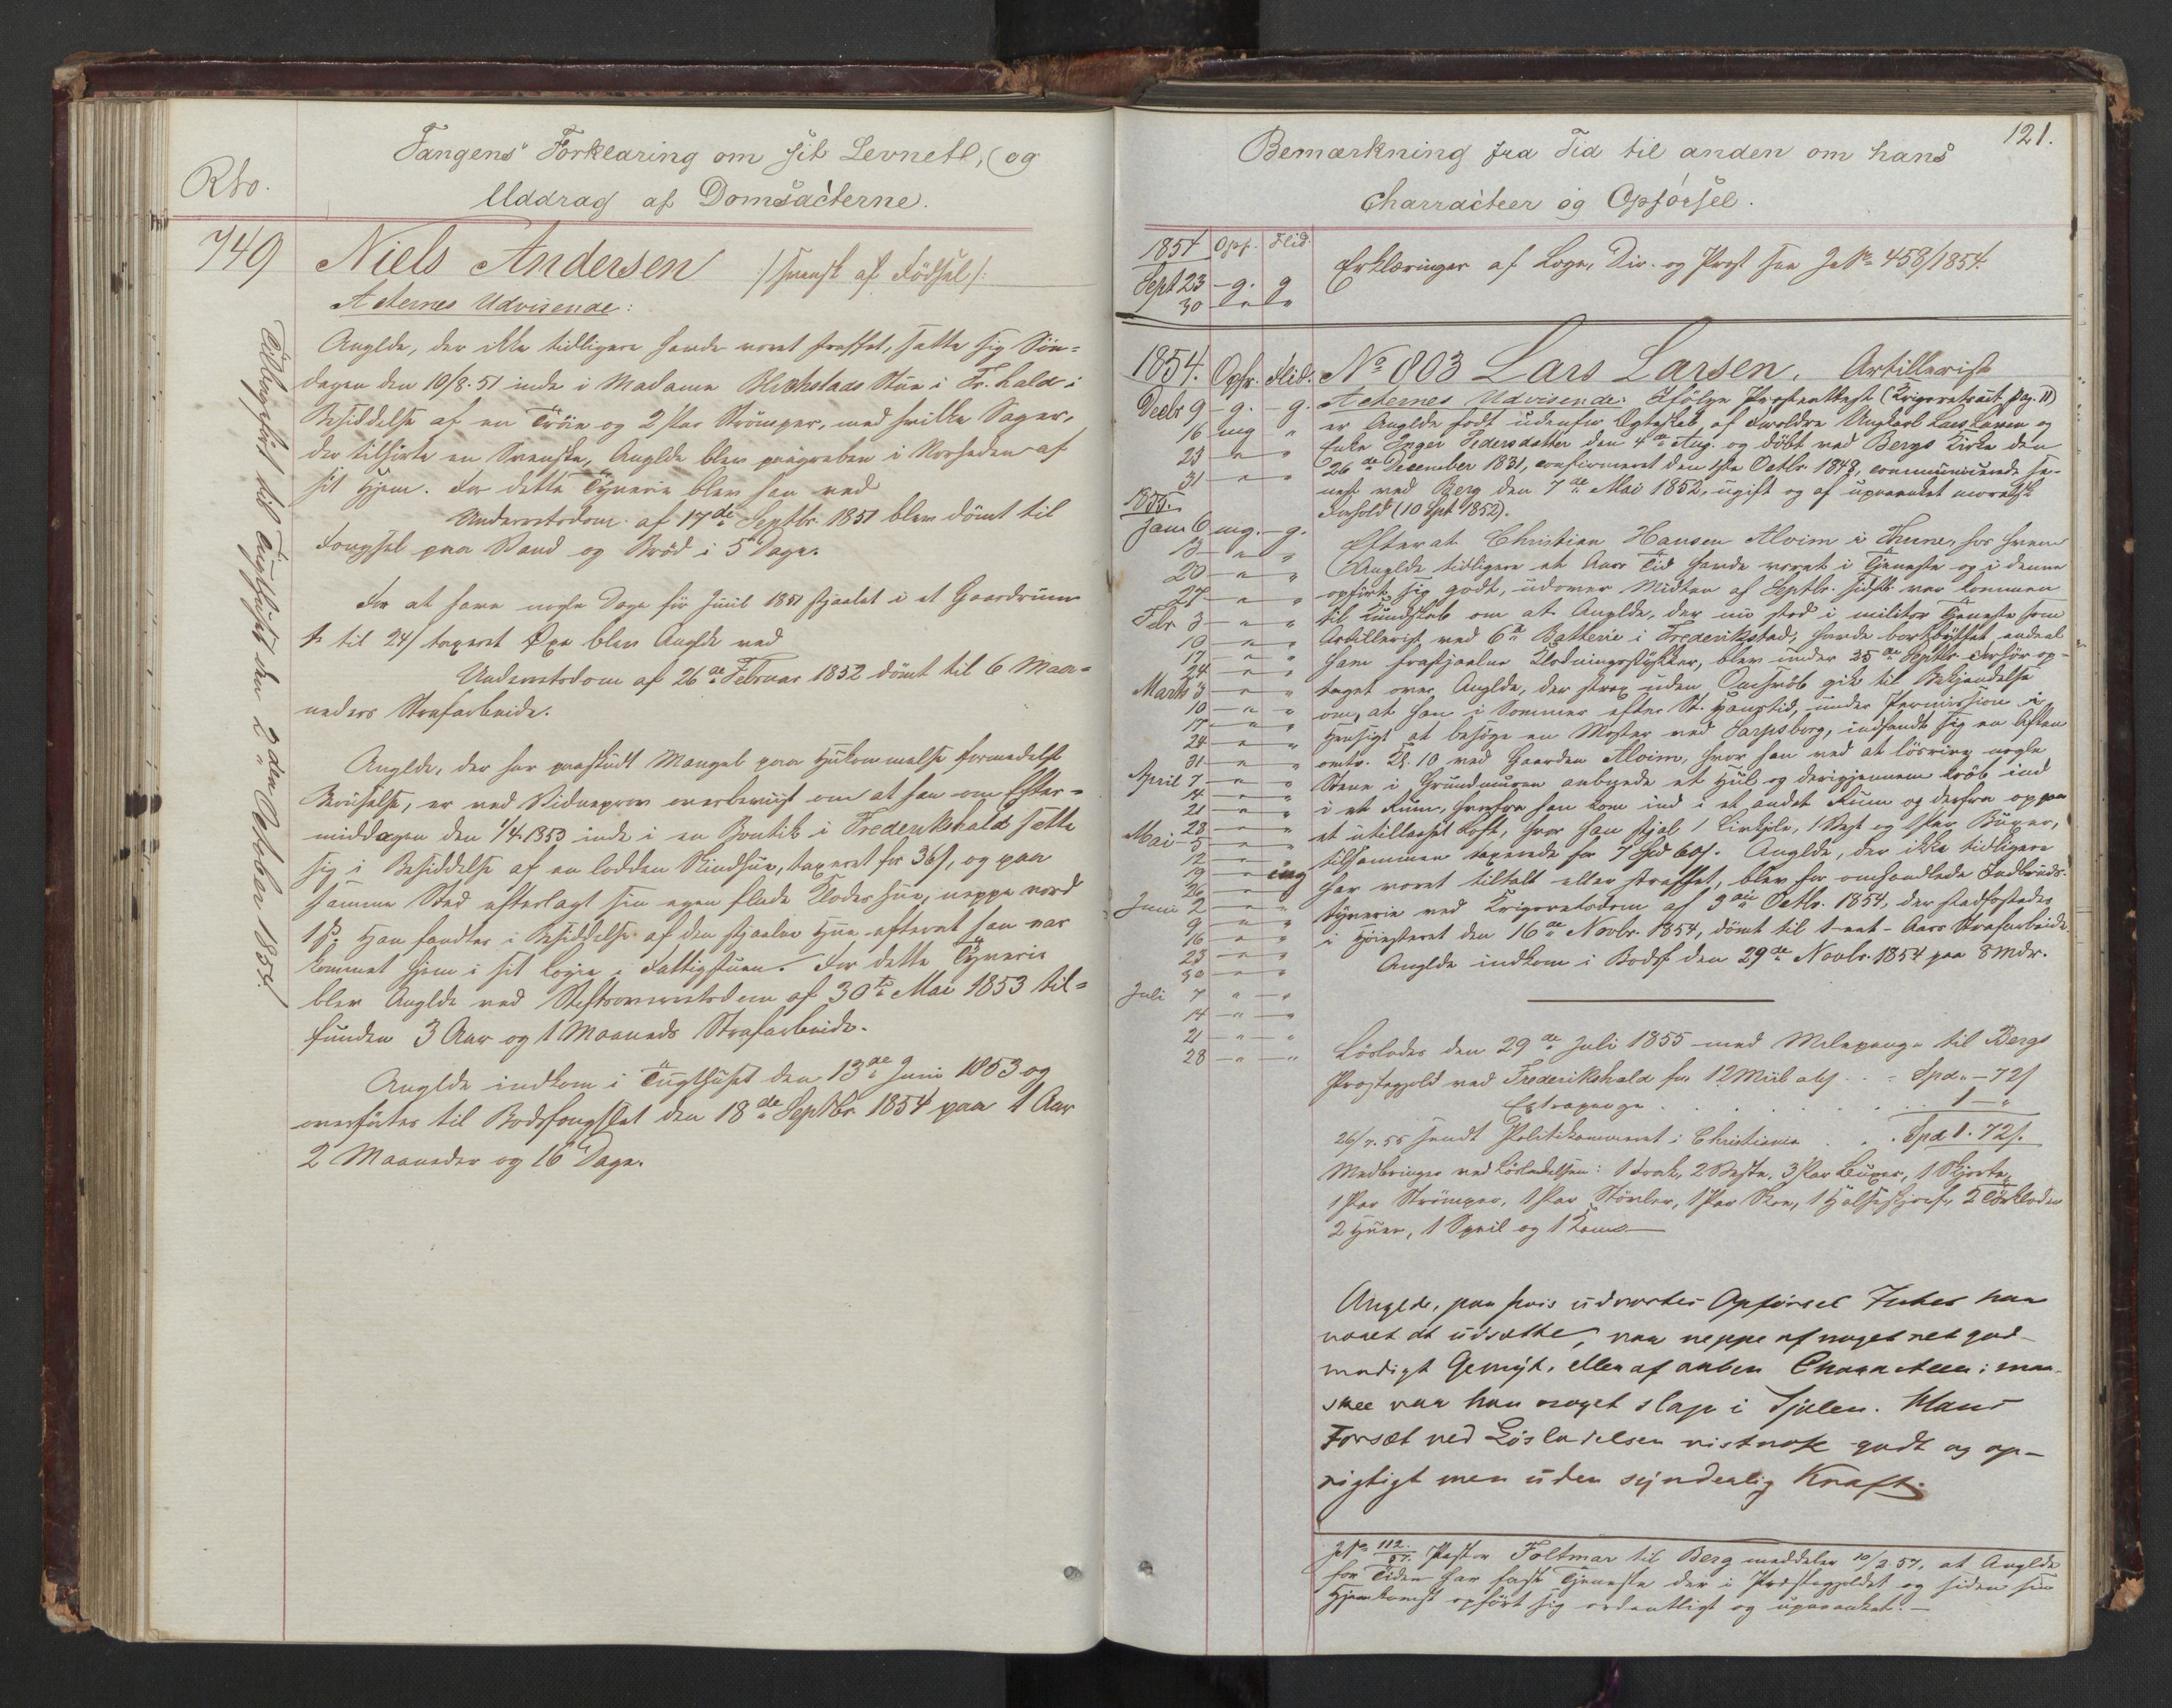 Fangens Forklaring om sit Levnetl, (og
Uddrag af Domsacterne.
RNo.
749 Niels Andersen /: svensk af Födsel /:
Acternes Udvisende:
Anglde, der ikke tidligere havde været straffet, satte sig Sön=
dagen den 10/8. 51 inde i Madame Stue i Fr.hald i
Besiddelse af en Tröie og 2 Par Strömper, med hvilke Sager,
der tilhörte en Svenske, Anglde blev paagreben i Nærheden af
sit Hjem. For dette Tyverie blev han ved
Underretsdom af 17de Septbr. 1851 blev dömt til
Fængsel paa Vand og Bröd i 5 Dage.
For at have nogle Dage för Juul 1851 stjaalet i et Gaardsrum
1 til 24 s taxeret Öxe blev Anglde ved
Underretsdom af 26de Februar 1852 dömt til 6 Maa=
neders Strafarbeide.
Anglde, der har paaskudt Mangel paa Hukommelse formedelst
Beruselse, er ved Vidneprov overbeviist om at han om Efter=
middagen den 1/4 1853 inde i en Boutik i Frederikshald satte
sig i Besiddelse af en lodden Skindhue, taxeret for 36 s, og paa
samme Sted efterlagt sin egen flade Klædeshue, neppe værd
1 s. Han fandtes i Besiddelse af den stjaalne Hue efterat han var
kommet hjem i sit Logie i Fattigstuen. For dette Tyverie
blev Anglde ved Stiftsoverretsdom af 30te Mai 1853 til=
funden 3 Aar og 1 Maaneds Strafarbeide.
Anglde indkom i Tugthuset den 13de Juni 1853 og
overförtes til Bodsfængslet den 18de Septbr. 1854 paa 1 Aar
2 Maaneder og 16 Dage.
Tilbageført til Tugthuset den 2den October 1854.
121.
Bemærkning fra Tid til anden om hans
Charracteer og Opførsel.
1854 Opf. Flid.
Sept 23 - g. g
30 " "
Erklæringer af Læge, Dir. og Præst see J No 458/1854.
1854. Opfr. Flid. No 803 Lars Larsen. Artillerist
Decbr 9 - g. - g.
16 mg "
23 " "
31 " "
1855.
Janr 6 mg. - g.
13 " "
20 " "
27 " "
Febr 3 " "
10 " "
17 " "
24 " "
Marts 3 " "
10 " "
17 " "
24 " "
31 " "
April 7 " "
14 " "
21 " "
28 " "
Mai 5 " "
12 " "
19 " mg
26 " "
Juni 2 " "
9 " "
16 " "
23 " "
30 " "
Juli 7 " "
14 " "
21 " "
28 " "
Acternes Udvisende: Ifölge Præsteattest (Krigsretsact pag. 11)
er Anglde födt udenfor Ægteskab af Forældre Ungkarl Lars Larsen og
Enke Inger Pedersdatter den 4de Aug. og döbt ved Bergs Kirke den
26de December 1831, confirmeret den 1ste Octbr. 1848, communicerede se-
nest ved Berg den 7de Mai 1852, ugift og af upaaanket moralsk
Forhold (10 Spt 1852).
Efterat Christian Hansen Alvim i Thune, hos hvem
Anglde tidligere et Aars Tid havde været i Tjeneste og i denne
opfört sig godt, udover Midten af Septbr. sidstl. var kommen
til Kundskab om at Anglde, der nu stod i militær Tjeneste som
Artillerist ved 6te Batterie i Frederikstad, havde bortbyttet endeel
ham frastjaalne Klædningsstykker, blev under 25de Septbr. Forhör op-
taget over Anglde, der strax uden Omsvöb gik til Bekjendelse
om, at han i Sommer efter St. Hanstid, under Permission i
Hensigt at besöge en Moster ved Sarpsborg, indfandt sig en Aften
omtr. Kl. 10 ved Gaarden Alvim, hvor han ved at lösrive nogle
Stene i Grundmuren aabnede et Hul og derigjennem kröb ind
i et Rum, hvorfra han kom ind i et andet Rum og derfra op paa
et utillaaset Loft, hvor han stjal 1 Livkjole, 1 Vest og 1 Par Buxer,
tilsammen taxerede for 7 Spd 60 s. Anglde, der ikke tidligere
har været tiltalt eller straffet, blev for omhandlede Indbruds-
tyverie ved Krigsretsdom af 3die Octbr. 1854, der stadfæstedes
i Höiesteret den 16de Novbr. 1854, dömt til 1-eet-Aars Strafarbeide.
Anglde indkom i Bodsf. den 29de Novbr. 1854 paa 8 Mdr.
Löslodes den 29de Juli 1855 med Milepenge til Bergs
Præstegjeld ved Frederikshald for 12 Miil a 6 s . . Spd. " - 72 s
Extrapenge . . . . . . 1 - "
26/7. 55 sendt Politikammeret i Christiania . . Spd 1. 72 s.
Medbringer ved Lösladelsen: 1 Frak, 2 Veste, 3 Par Buxer, 1 Skjorte,
1 Par Strömper, 1 Par Stövler, 1 Par Skoe, 1 Halstörkl., 2 Törklæder
2 Huer, 1 Speil og 1 Kam.
Anglde, paa hvis udvortes Opförsel Intet har
været at udsætte, var neppe af noget ret god-
modigt Gemyt, eller af aaben Characteer; maa-
skee var han noget slap i Sjælen. Hans
Forsæt ved Løsladelsen vistnok godt og op-
rigtigt men uden synderlig Kraft.
J No 112/57. Pastor Foltmar til Berg meddeler 10/2 57, at Anglde
for Tiden har fast Tjeneste der i Præstegjeldet og siden sin
Hjemkomst opfört sig ordentligt og upaaanket. -